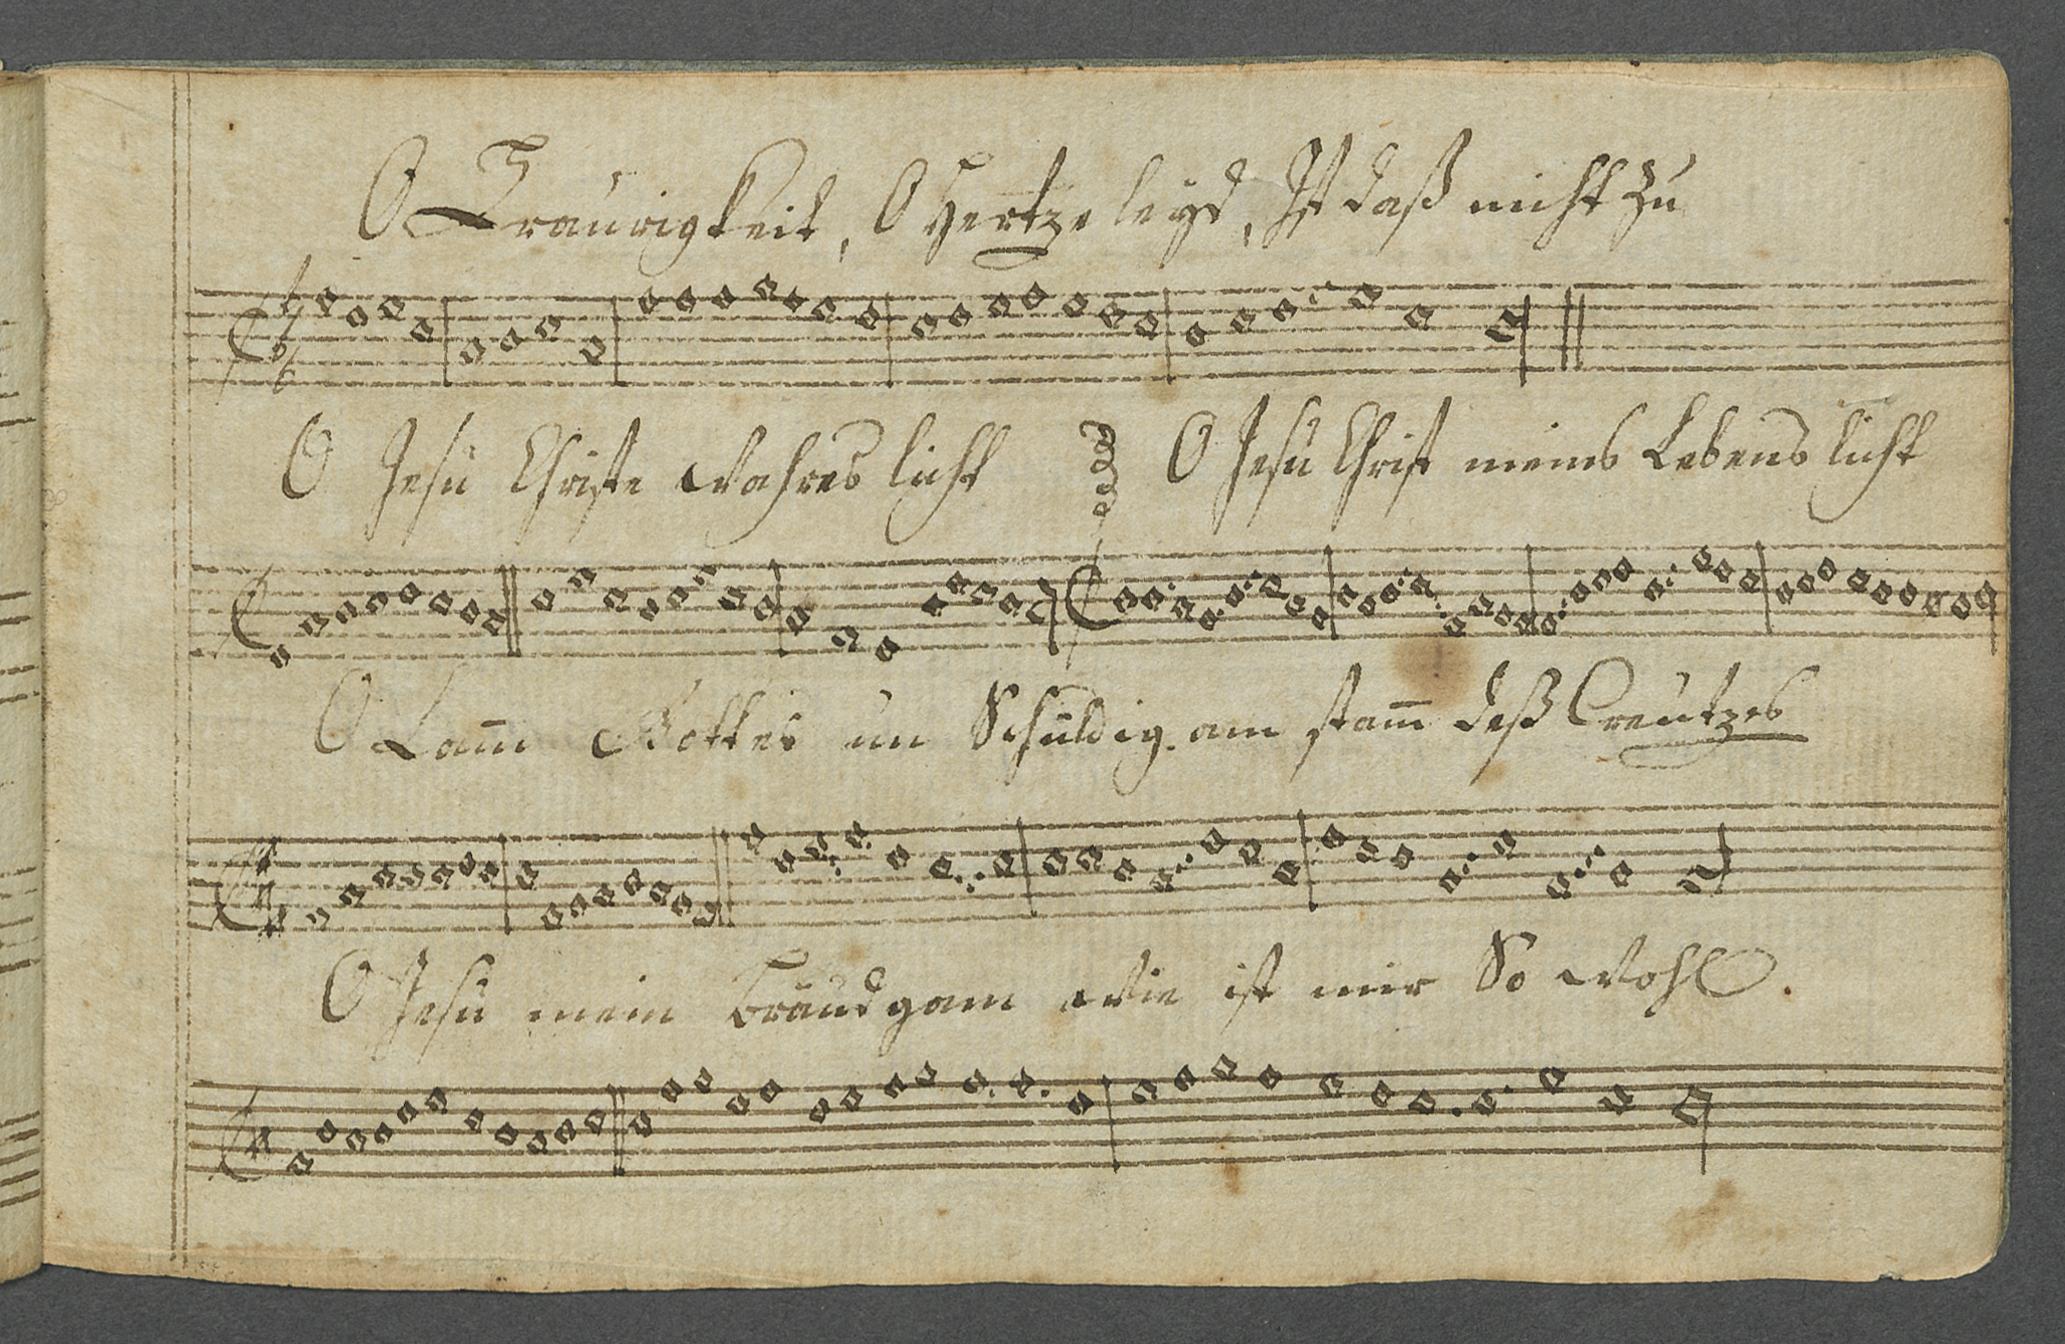 O Traurigkeit, O Hertzeleyd, Ist daß nicht zu
O Jesu Christe Wahres licht O Jesu Christ meins Lebens licht
O Lam̄ Gottes un Schuldig. am stam̄ deß Creutzes
O Jesu mein Bräudgam Wie ist mir So Wohl.